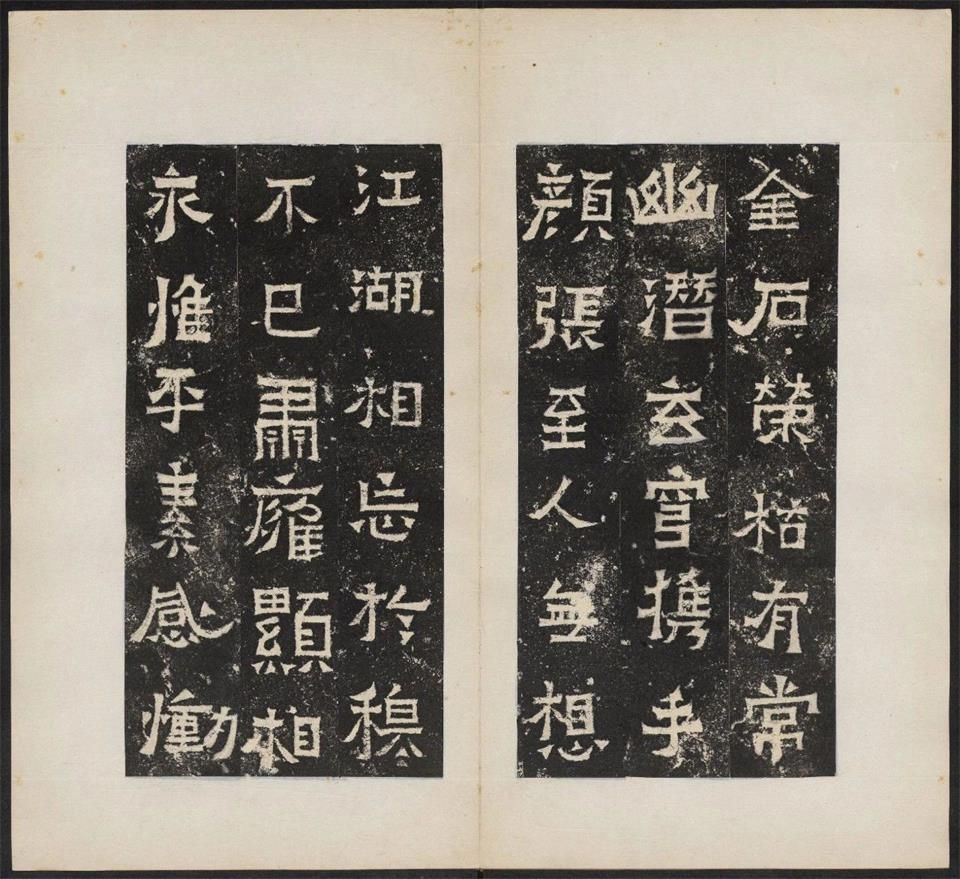 金石榮枯有常
幽潛玄穹攜手
顏張至人無想
江湖相忘於穆
不已肅雍顯相
永惟平素感慟